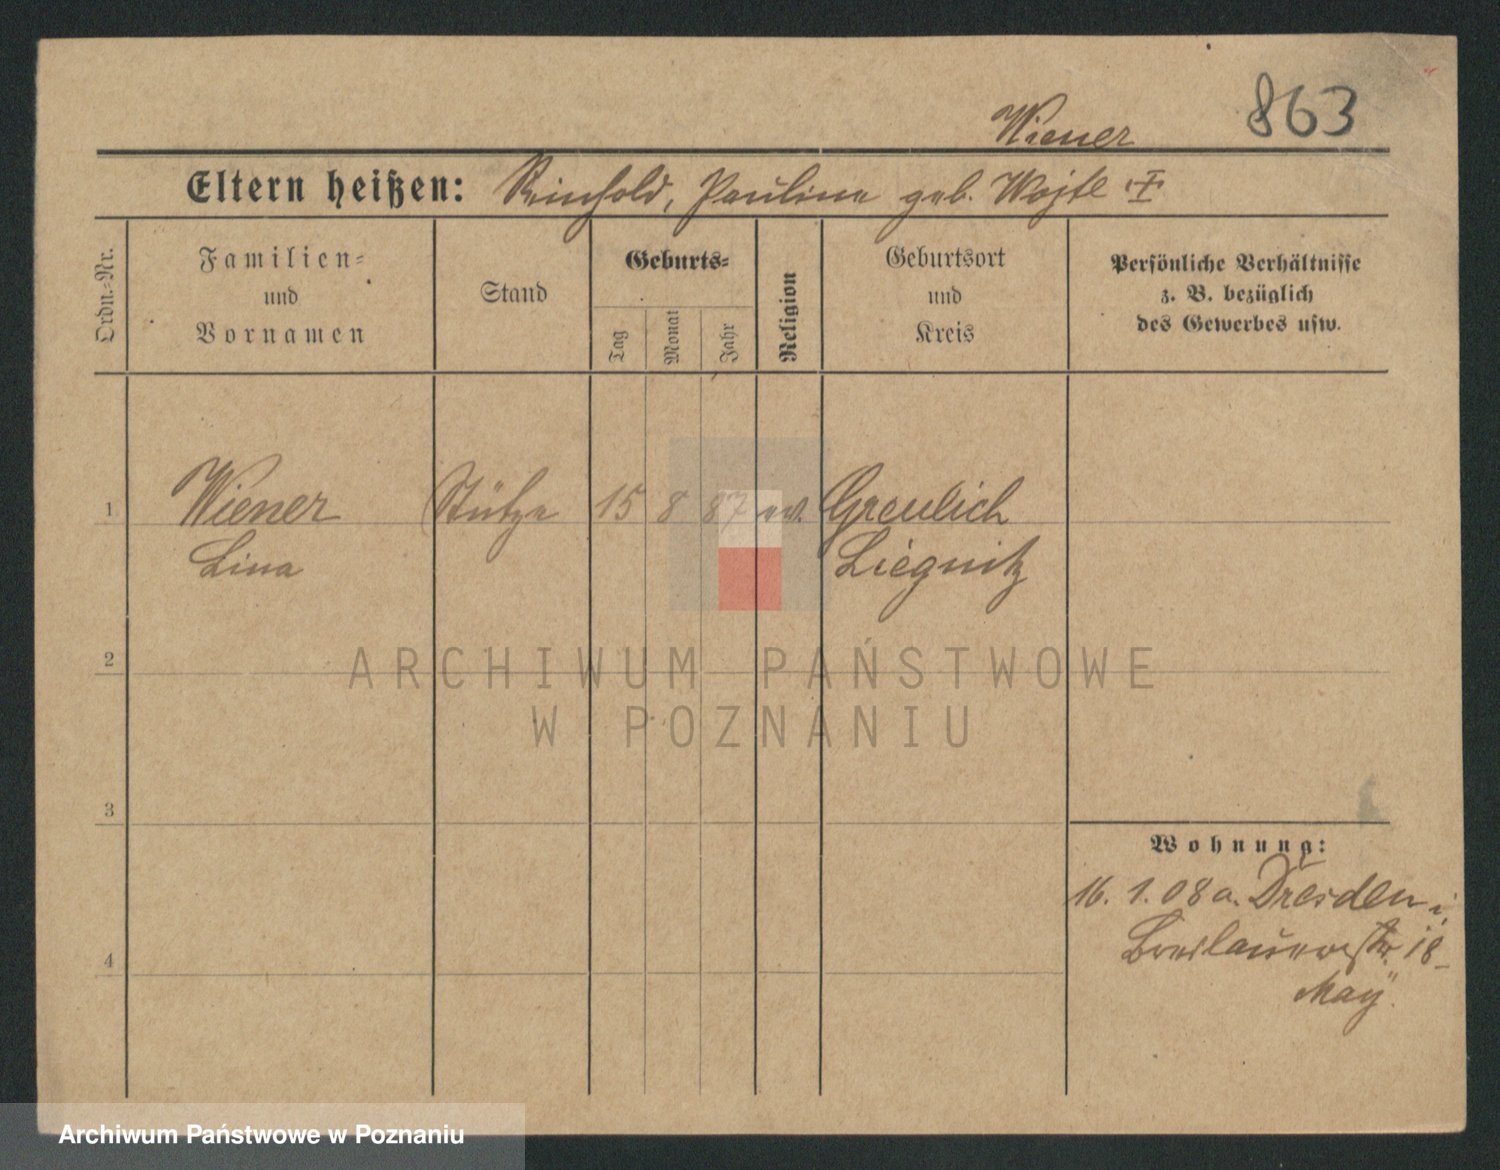 863
Wiener
Eltern heißen: Reinhold, Pauline geb. Wojtke
Ordn.=Nr.
Familien=
und
Vornamen
Stand
Geburts=
Tag
Monat
Jahr
Religion
Geburtsort
und
Kreis
Persönliche Verhältnisse
z. B. bezüglich
des Gewerbes usw.
1 Wiener Stütze 15 8 87 ev. Greulich
Lina Liegnitz
2
ARCHIWUM PAŃSTWOWE
W POZNANIU
3
Wohnung:
16. 1. 08 a. Dresden i.
4 Breslauerstr. 18
May
Archiwum Państwowe w Poznaniu